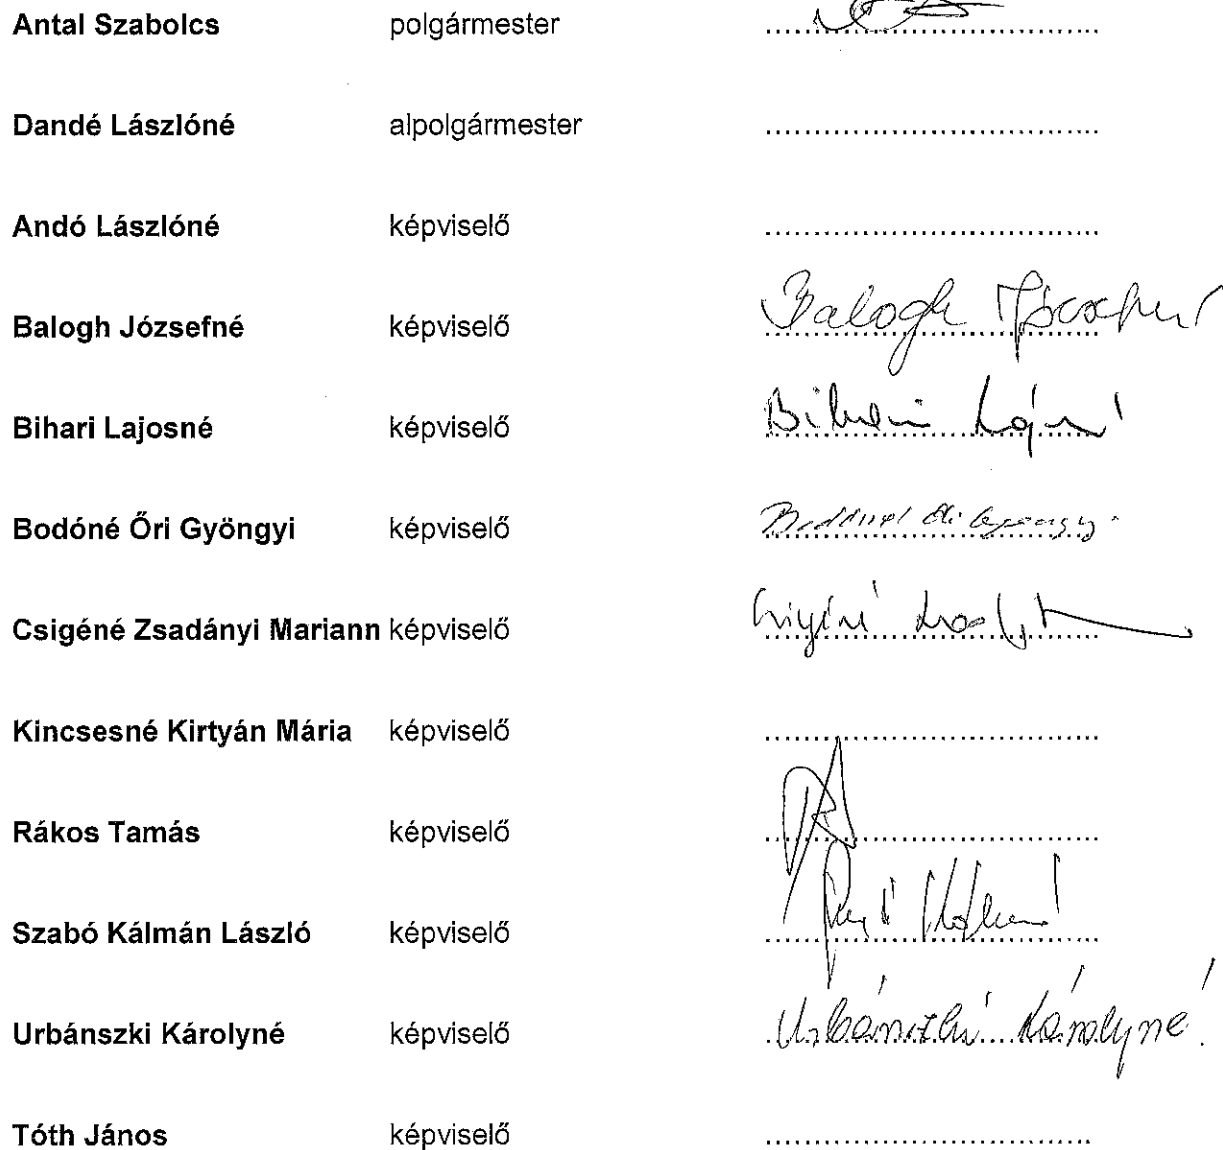 Antal Szabolcs polgármester
Dandé Lászlóné alpolgármester
Andó Lászlóné képviselő
Balogh Józsefné képviselő Balogh Józsefné
Bihari Lajosné képviselő Bihari
Bodóné Őri Gyöngyi képviselő Bodóné Őri Gyöngyi
Csigéné Zsadányi Mariann képviselő Csigéné
Kincsesné Kirtyán Mária képviselő
Rákos Tamás képviselő
Szabó Kálmán László képviselő Szabó Kálmán
Urbánszki Károlyné képviselő Urbánszki Károlyné
Tóth János képviselő